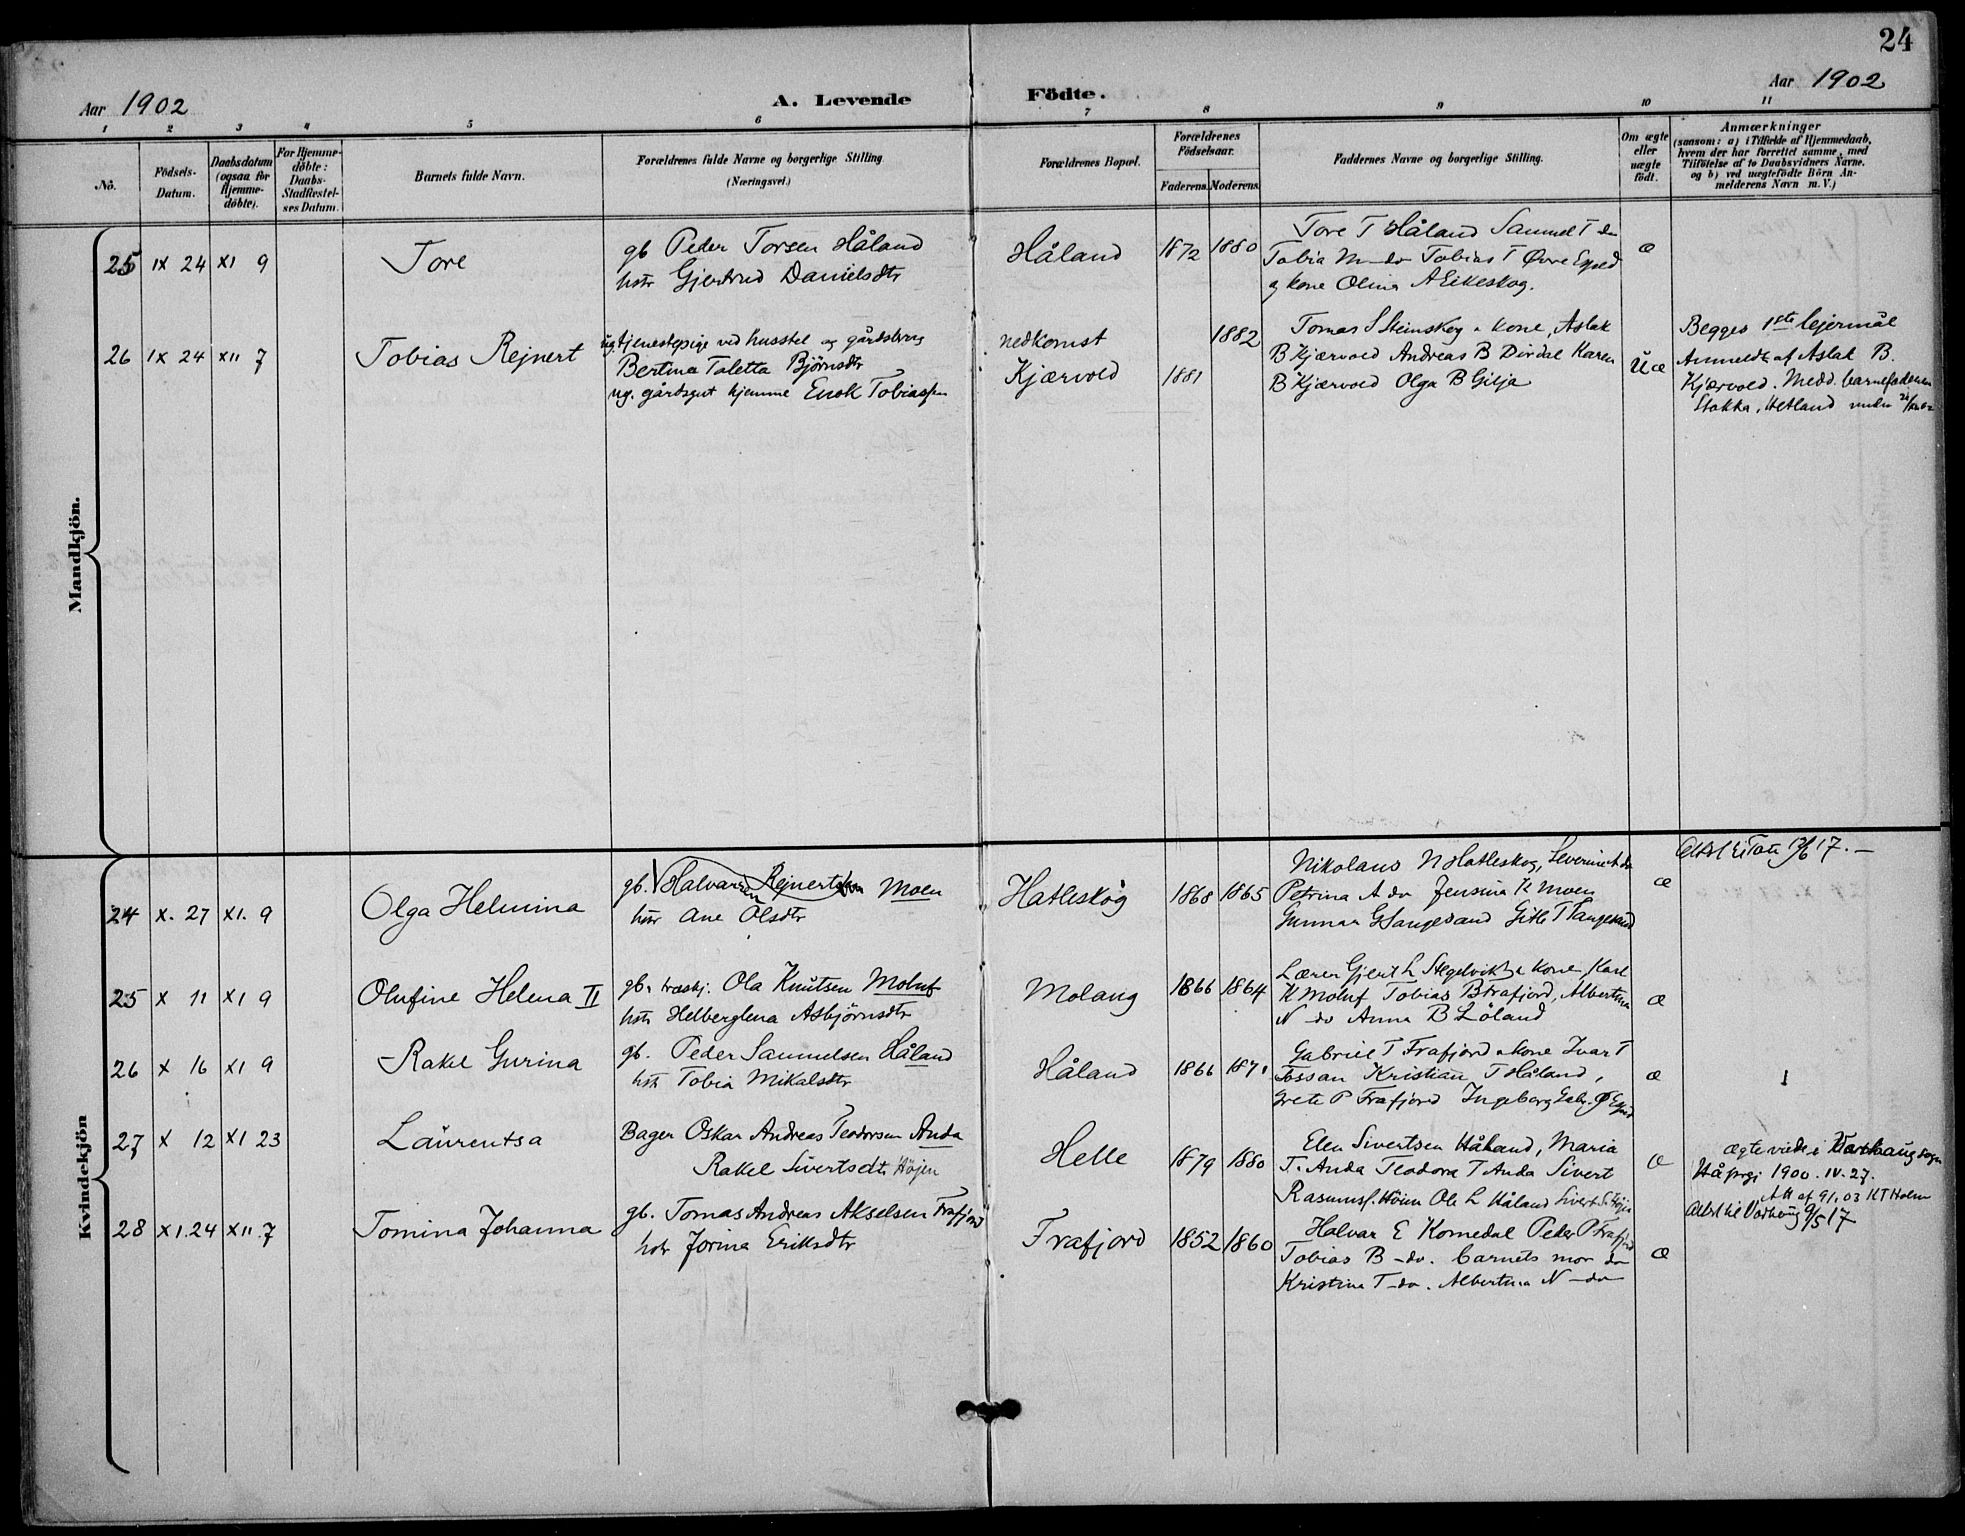 24
Aar 1902
A. Levende Födte.
Aar 1902
1 2 3 4 5 6 7 8 9 10 11
No.
Födsels-Datum.
Daabsdatum (ogsaa for Hjemme-döbte).
For Hjemme-döbte: Daabs-Stadfæstel-ses Datum.
Barnets fulde Navn.
Forældrenes fulde Navne og borgerlige Stilling
(Næringsvei.)
Forældrenes Bopæl.
Forældrenes Födselsaar.
Faderens. Moderens.
Faddernes Navne og borgerlige Stilling.
Om ægte eller uægte födt.
Anmærkninger
(saasom: a) i Tilfælde af Hjemmedaab,
hvem der har forrettet samme, med
Tilföielse af to Daabsvidners Navne.
og b) ved uægtefödte Börn An-
melderens Navn m. V.)
Mandkjön.
25 IX 24 XI 9 Tore
gb Peder Torsen Håland
hstr Gjertrud Danielsdtr
Håland 1872 1880
Tore T Håland Samuel T do
Tobia M do Tobias T Øvre Esped
og kone Olina A Eikeskog.
æ
26 IX 24 XII 7 Tobias Rejnert
ug. tjenestepige ved husstel og gårdsbrug
Bertina Taletta Björnsdtr
ug. gårdsgut hjemme Enok Tobiassen
nedkomst
Kjærvold 1881 1882
Tomas S Steinskog & kone, Aslak
B Kjærvold Andreas B Dirdal Karen
B Kjærvold Olga B Gilja
uæ
Begges 1ste lejermål
Anmeldt af Aslak B.
Kjærvold. Medd. barnefaderen
Stokka, Hetland under
Kvindekjön
24 X. 27 XI. 9 Olga Helmina
gb. Halvar Rejnertsen Moen
hstr Ane Olsdtr
Hatleskog 1868 1865
Nikolaus N Hatleskog, Severine A do
Petrina A do Jensine K Moen
Gunnar G Haugesand Gitle T Haugesand
æ
17.
25 X 11 XI 9 Olufine Helena II
gb. & træskj. Ola Knutsen Moluf
hstr Helberglena Asbjörnsdtr
Molaug 1866 1864
Lærer Gjert L Stegelvik & kone, Karl
K Moluf Tobias B Frafjord, Albertina
N do Anna B Löland
æ
26 X 16 XI 9 Rakel Gurina
gb. Peder Samuelsen Håland
hstr Tobia Mikalsdtr
Håland 1866 1871
Gabriel T Frafjord & kone Ivar T
Fossan Kristian T Håland,
Grete P Frafjord Ingeborg Gabr. Ø Espd
æ
27 X 12 XI 23 Laurentsa
Bager Oskar Andreas Teodorsen Anda
Rakel Sivertsdtr Höjen
Helle 1879 1880
Elen Sivertsen Håland, Maria
T. Anda Teodora T Anda Sivert
Rasmuss. Höien Ole L Håland Sivert S. Höjen
æ
ægteviede i Varhaug sogn
Hå prgj 1900. IV. 27.
Att af 9/1 03 KT Holm
Attest til Varhaug 9/5 17
28 XI. 24 XII. 7 Tomina Johanna
gb. Tomas Andreas Akselsen Frafjord
hstr Jorina Eriksdtr
Frafjord 1852 1860
Halvar E Komedal Peder P Frafjord
Tobias B - do. barnets mor do
Kristine T - do. Albertina N - do
æ